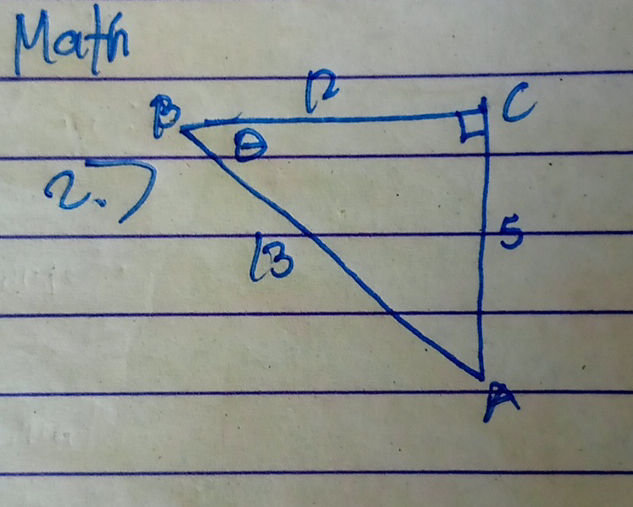 Math
12
B C
θ
2.)
5
13
A